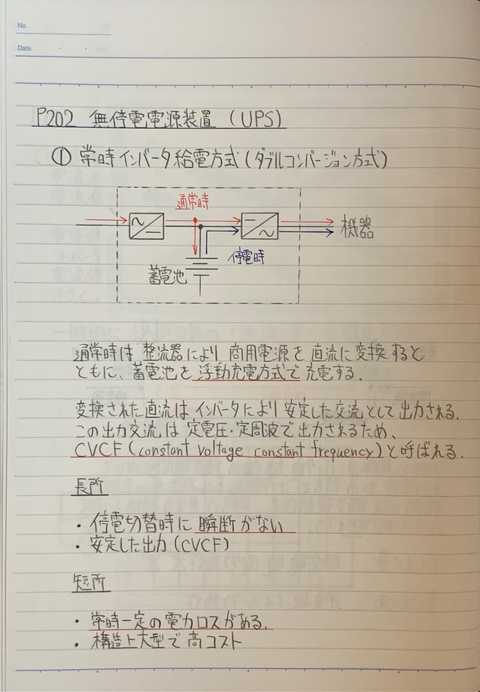 No.
Date
P202 無停電電源装置 (UPS)
① 常時インバータ給電方式(ダブルコンバージョン方式)
通常時
機器
停電時
蓄電池
通常時は 整流器により 商用電源を 直流に変換すると
ともに、蓄電池を 浮動充電方式で充電する.
変換された直流はインバータにより 安定した交流として出力される.
この出力交流は 定電圧・定周波で出力されるため、
CVCF(constant voltage constant frequency)と呼ばれる.
長所
・停電切替時に 瞬断がない
・安定した出力(CVCF)
短所
・常時一定の電力ロスがある.
・構造上大型で高コスト